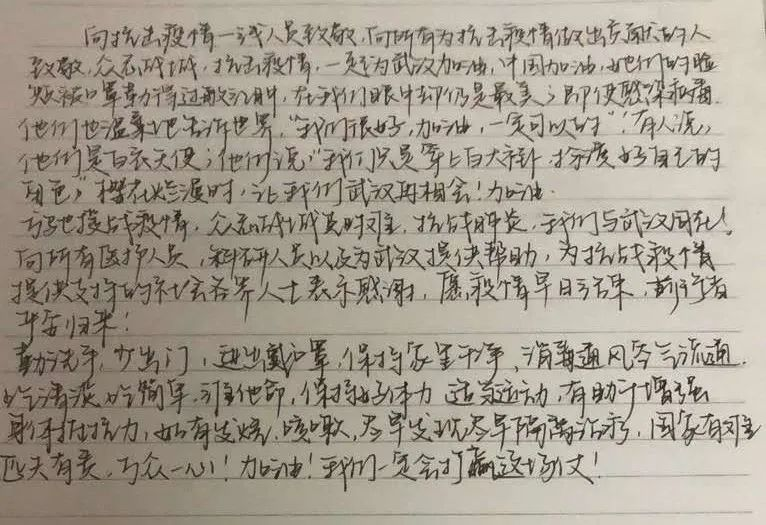 向抗击疫情一线人员致敬,向所有为抗击疫情做出贡献的人
致敬,众志成城,抗击疫情,一定为武汉加油,中国加油,他们的脸
颊被口罩勒得过敏泛红,在我们眼中却仍是最美;即使感染病毒
他们也温柔地告诉世界,“我们很好,加油,一定可以的”!有人说,
他们是白衣天使;他们说“我们只是穿上白大褂,扮演好自己的
角色”樱花烂漫时,让我们武汉再相会!加油.
战疫情,众志成城真时,抗战肺炎,我们与武汉同在!
向所有医护人员,科研人员以及为武汉提供帮助,为抗战疫情
提供支持的社会各界人士表示感谢,愿疫情早日结束,前行者
平安归来!
勤洗手,少出门,进出戴口罩,保持家里干净,消毒通风空气流通.
吃清淡吃简单,保持好体力 适当运动,有助于增强
身体抵抗力,如有发烧,咳嗽,尽早发现尽早隔离治疗,国家有难
匹夫有责,万众一心!加油!我们一定会打赢这场仗!